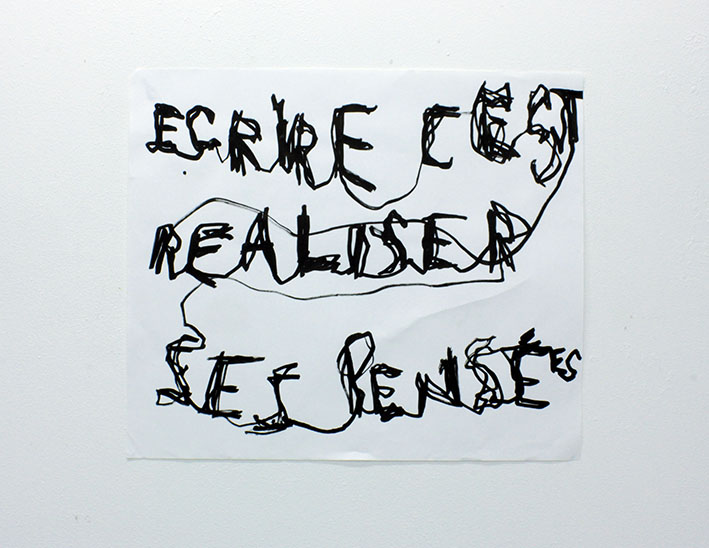 ECRIRE C'EST
REALISER
SES PENSÉES